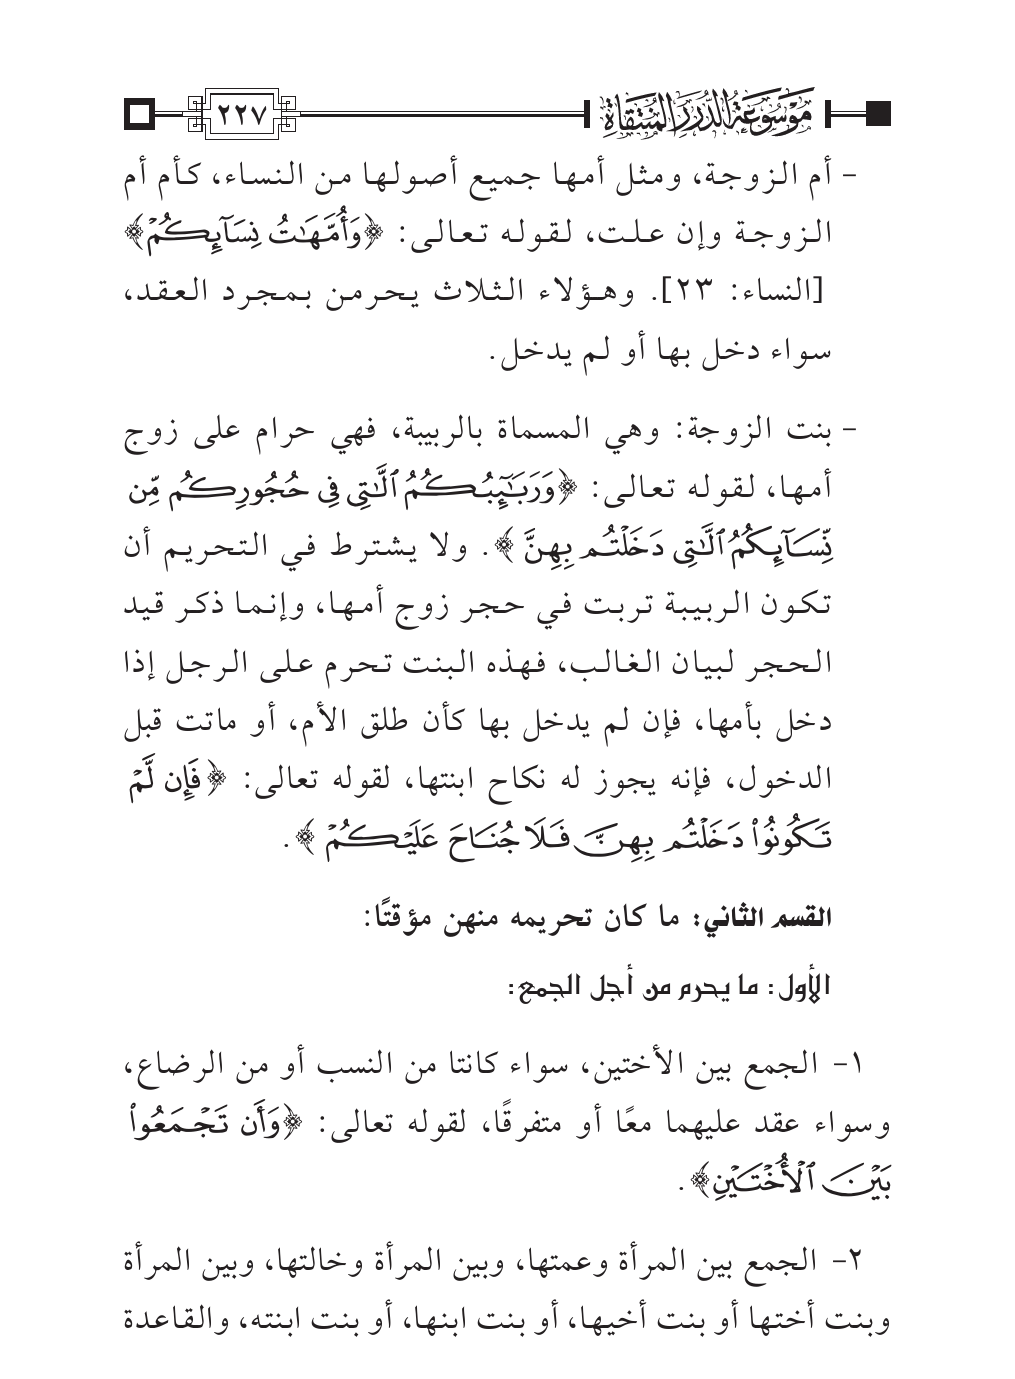 موسوعة الدرر المنتقاة
٢٢٧
- أم الزوجة، ومثل أمها جميع أصولها من النساء، كأم أم
الزوجة وإن علت، لقوله تعالى: ﴿وَأُمَّهَٰتُ نِسَآئِكُمۡ﴾
[النساء: ٢٣]. وهؤلاء الثلاث يحرمن بمجرد العقد،
سواء دخل بها أو لم يدخل.
- بنت الزوجة: وهي المسماة بالربيبة، فهي حرام على زوج
أمها، لقوله تعالى: ﴿وَرَبَٰٓئِبُكُمُ ٱلَّٰتِي فِي حُجُورِكُم مِّن
نِّسَآئِكُمُ ٱلَّٰتِي دَخَلۡتُم بِهِنَّ﴾. ولا يشترط في التحريم أن
تكون الربيبة تربت في حجر زوج أمها، وإنما ذكر قيد
الحجر لبيان الغالب، فهذه البنت تحرم على الرجل إذا
دخل بأمها، فإن لم يدخل بها كأن طلق الأم، أو ماتت قبل
الدخول، فإنه يجوز له نكاح ابنتها، لقوله تعالى: ﴿فَإِن لَّمۡ
تَكُونُواْ دَخَلۡتُم بِهِنَّ فَلَا جُنَاحَ عَلَيۡكُمۡ﴾.
القسم الثاني: ما كان تحريمه منهن مؤقتًا:
الأول: ما يحرم من أجل الجمع:
١- الجمع بين الأختين، سواء كانتا من النسب أو من الرضاع،
وسواء عقد عليهما معًا أو متفرقًا، لقوله تعالى: ﴿وَأَن تَجۡمَعُواْ
بَيۡنَ ٱلۡأُخۡتَيۡنِ﴾.
٢- الجمع بين المرأة وعمتها، وبين المرأة وخالتها، وبين المرأة
وبنت أختها أو بنت أخيها، أو بنت ابنها، أو بنت ابنته، والقاعدة